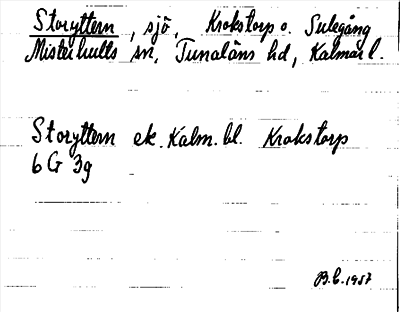 Storyttern, sjö, Krokstorp o. Sulegång
Misterhults sn, Tunaläns hd, Kalmar l.
Storyttern ek. Kalm. bl. Krokstorp
6 G 3g
B.C. 1957